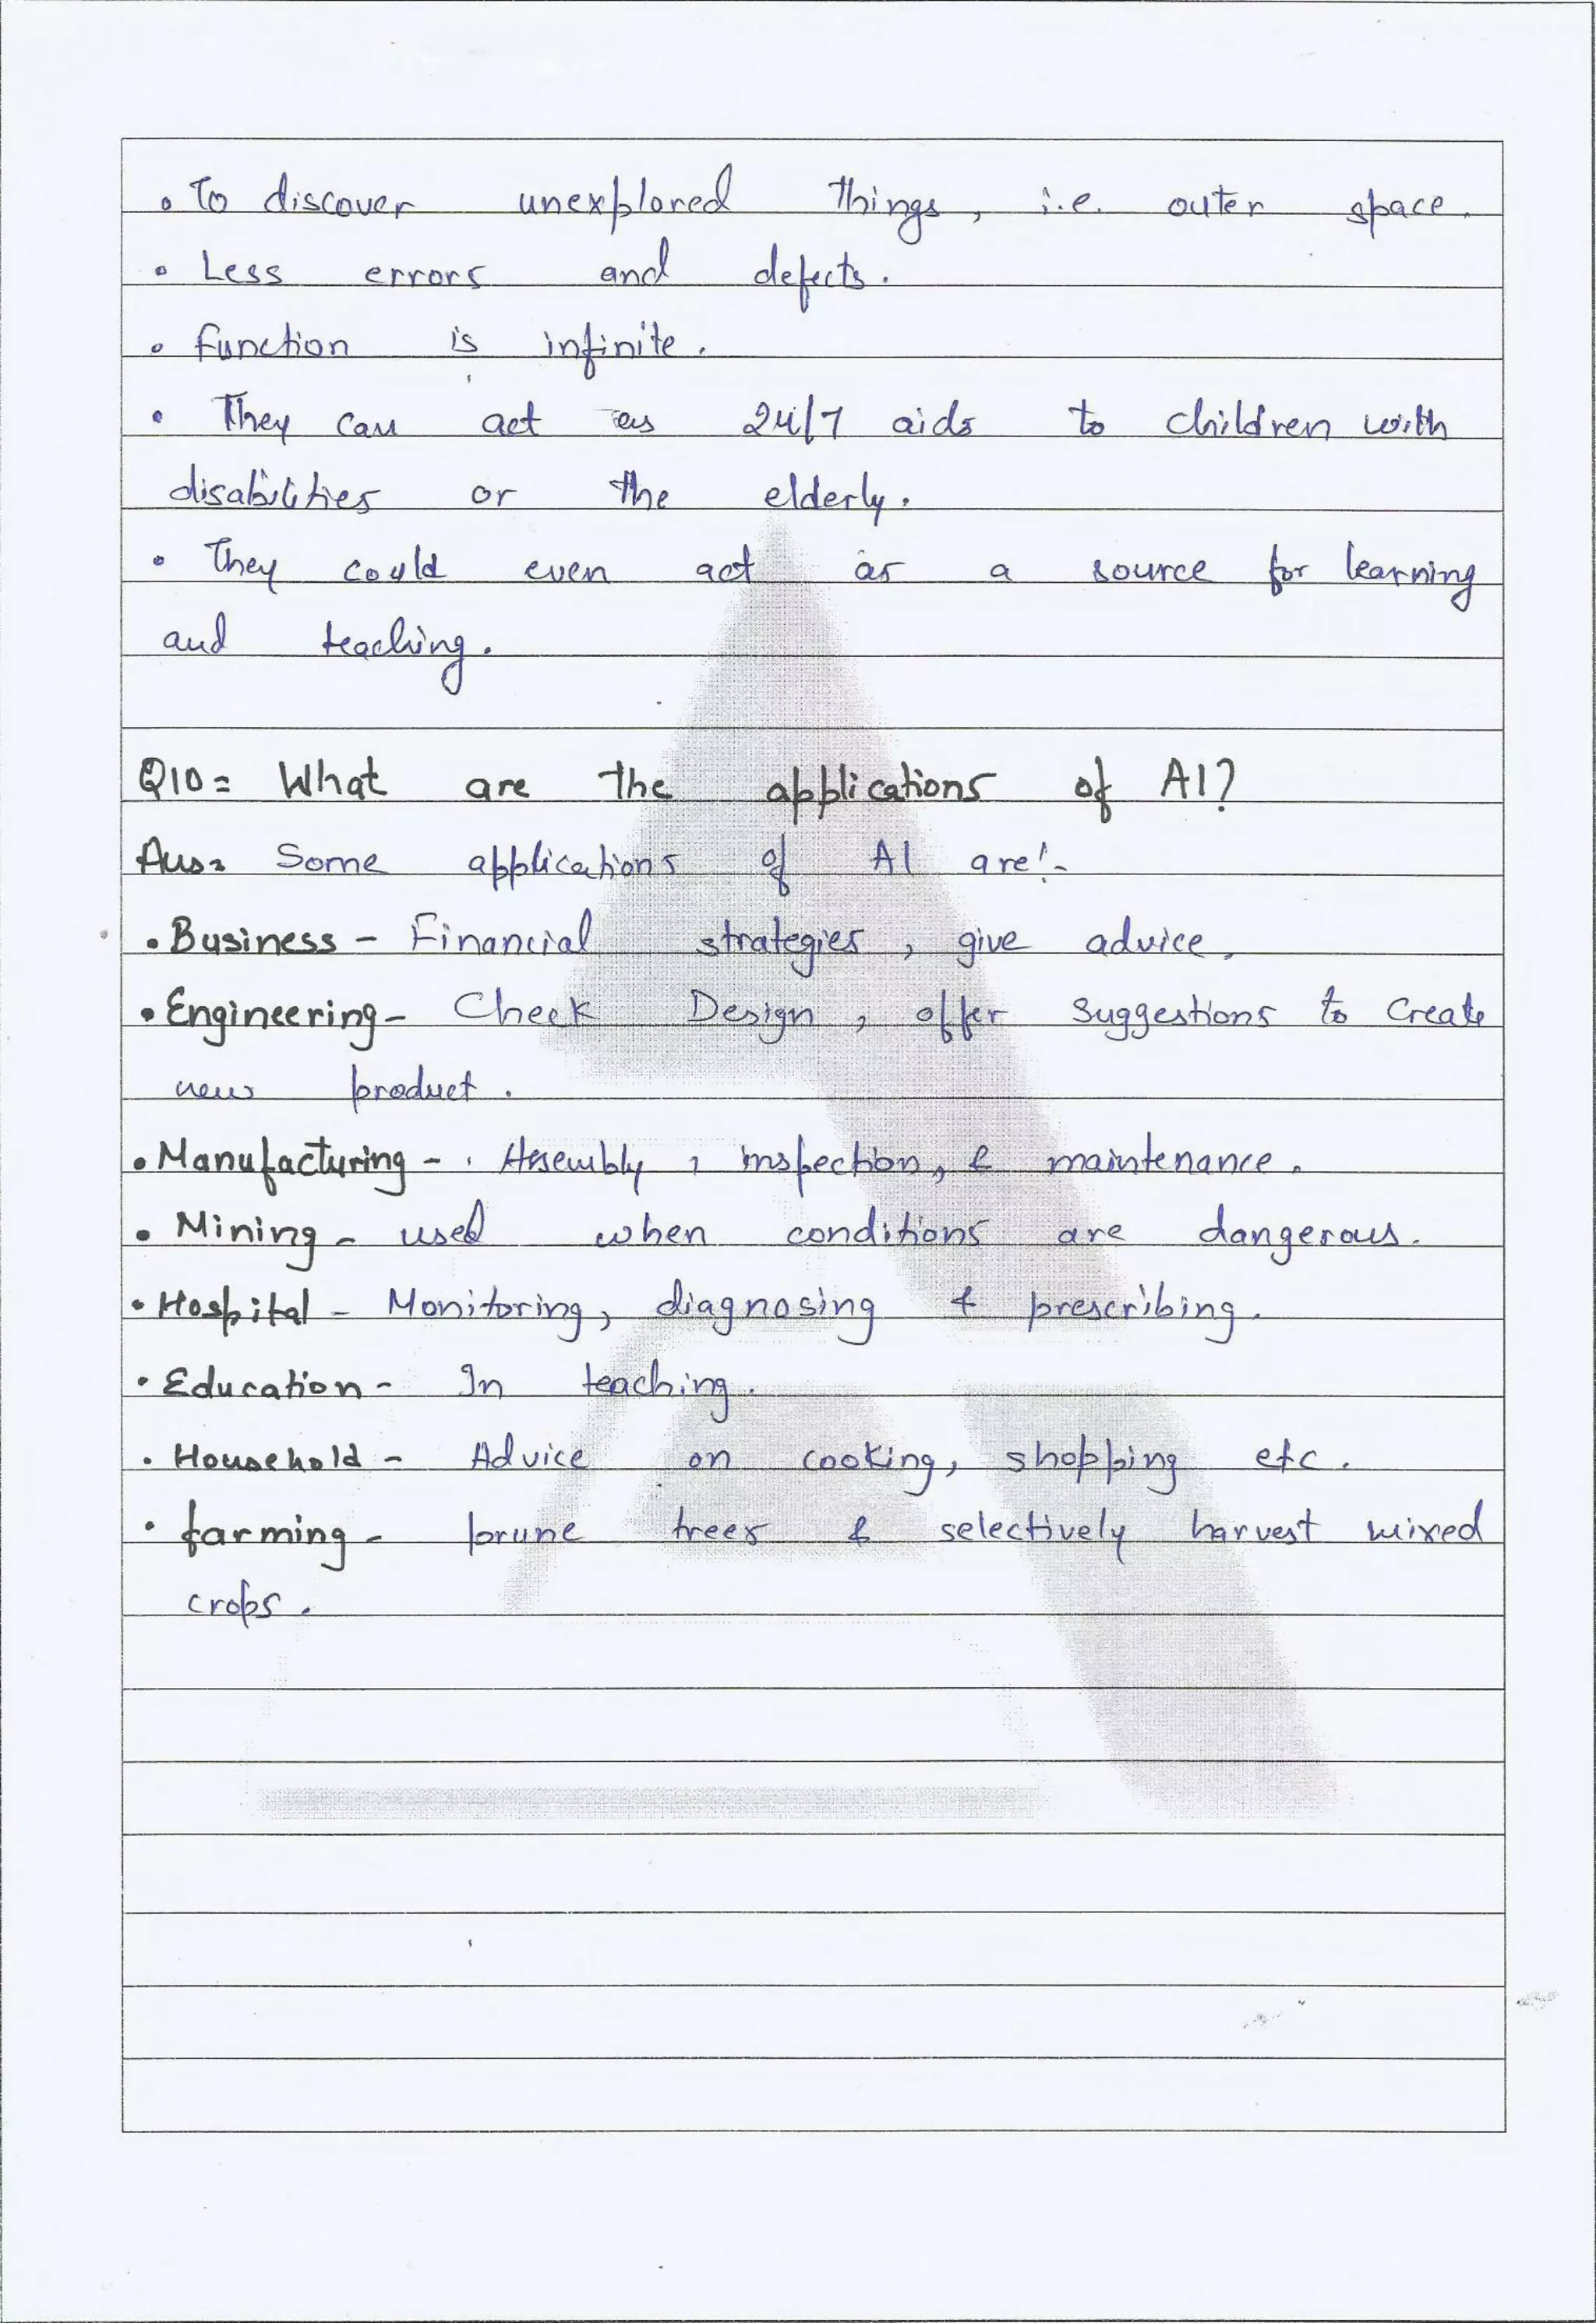 • To discover unexplored things, i.e. outer space.
• Less errors and defects.
• function is infinite.
• They can act as 24/7 aids to children with
disabilities or the elderly.
• They could even act as a source for learning
and teaching.
Q10= What are the applications of AI?
Ans= Some applications of AI are:-
• Business - Financial strategies, give advice.
• Engineering - Check Design, offer suggestions to create
new product.
• Manufacturing - Assembly, inspection, & maintenance.
• Mining - used when conditions are dangerous.
• Hospital - Monitoring, diagnosing & prescribing.
• Education - In teaching.
• Household - Advice on cooking, shopping etc.
• farming - prune trees & selectively harvest mixed
crops.